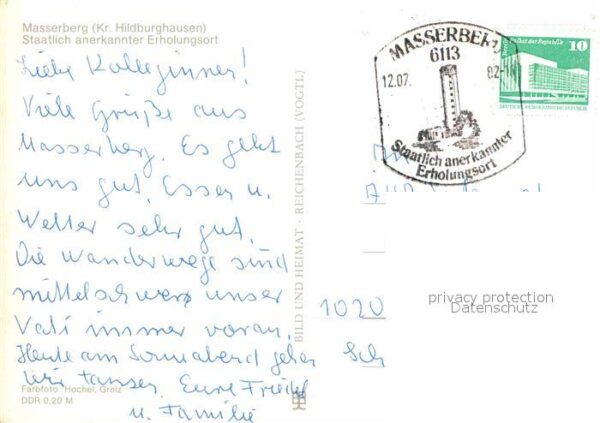 Masserberg (Kr. Hildburghausen)
Staatlich anerkannter Erholungsort
Liebe Kolleginner!
Viele Grüße aus
Masserberg. Es geht
uns gut. Essen u.
Wetter sehr gut.
Die Wanderwege sind
mittelschwer unser
Vati immer voran.
Heute am Sonnabend gehen
wir tanzen. Eure
u. Familie
Farbfoto: Höchel, Greiz
DDR 0,20 M
BILD UND HEIMAT · REICHENBACH (VOGTL.)
MASSERBERG
6113
12.07. 82-
Staatlich anerkannter
Erholungsort
Palast der Republik
10
DEUTSCHE DEMOKRATISCHE REPUBLIK
1020
privacy protection
Datenschutz